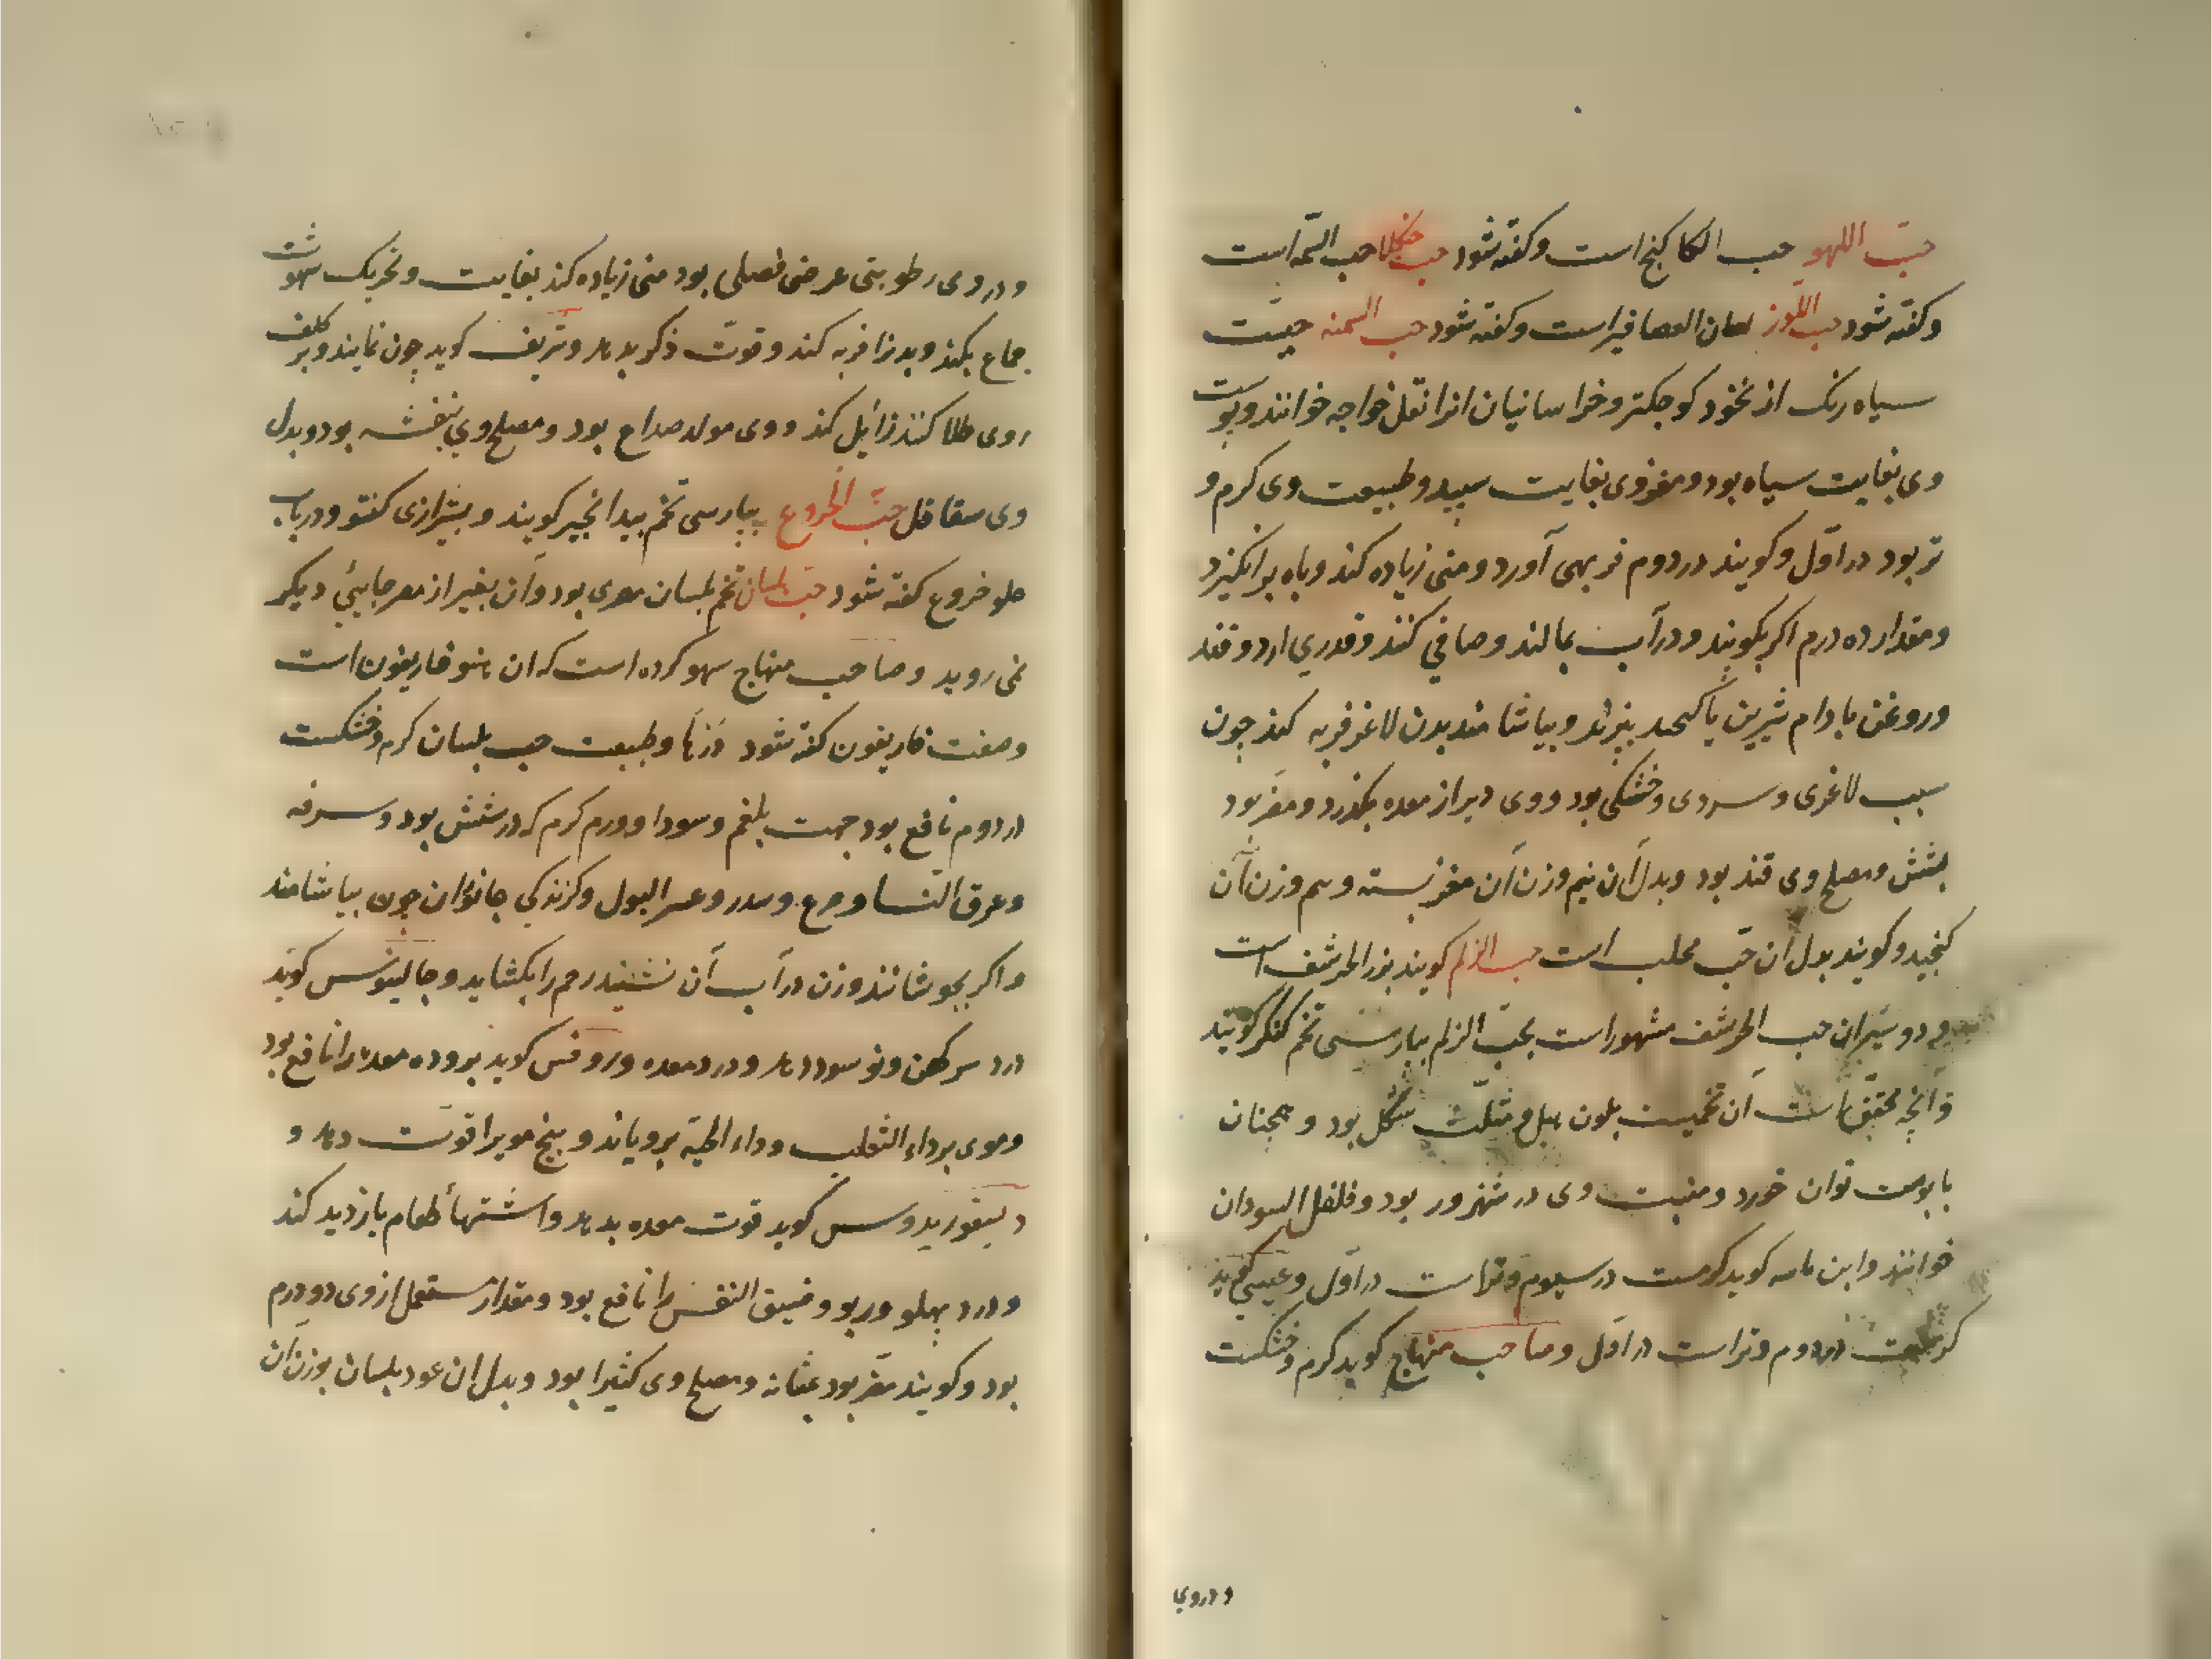 حبّ اللهو حب الکاکنج است و کفته شود حب حنکلا حب السمنه است
و کفته شود حب اللوز لسان العصافیر است و کفته شود حب السمنه حبیّت
سیاه رنک از نخود کوجکتر و خراسانیان انرا نقل خواجه خوانند و پوست
وی بغایت سیاه بود و مغز وی بغایت سپید و طبیعت وی کرم و
تر بود در اوّل و کویند در دوم فربهی آورد و منی زیاده کند و باه برانکیزد
و مقدار ده درم اکر بکوبند و در آب بمالند و صافی کنند و قدری ارد و قند
و روغن بادام شیرین با کنجد بپزند و بیاشامند بدن لاغر فربه کند جون
سبب لاغری و سردی و خشکی بود و وی دیر از معده بکذرد و مضر بود
بشش و مصلح وی قند بود و بدل آن نیم وزن آن مغز پسته و هم وزن آن
کنجید و کویند بدل ان حبّ محلب است حب الزلم کویند بزر الحرشف است
و در شیراز حب الحرشف مشهور است بحبّ الزلم بپارسی تخم کنکر کویند
و آنچه محقق است آن تخمیست بلون مثلّث شکل بود و همجنان
با پوست توان خورد و منبت وی در شهرزور بود و فلفل السودان
خوانند و ابن ماسه کوید کرمست در سیوم و تر است در اوّل و عیسی کوید
کرمست در دوم و تر است در اوّل و صاحب منهاج کوید کرم و خشکست
و در وی
و در وی رطوبتی عرضی فصلی بود منی زیاده کند بغایت و تحریک شهوت
جماع بکند و بدنرا فربه کند و قوّت ذکر بدهد و شریف کوید جون نمایند و بر کلف
روی طلا کنند زائل کند و وی مولد صداع بود و مصلح وی بنفشه بود و بدل
وی سقاقل حبّ الخروع بپارسی تخم بیدانجیر کویند و بشیرازی کنتو و در باب
خروع کفته شود حبّ بلسان تخم بلسان مصری بود و آن بغیر از مصر جایئی دیکر
نمی روید و صاحب منهاج سهو کرده است که ان هیوفاریقون است
و صفت فاریقون کفته شود در ها و طبیعت حب بلسان کرم و خشکست
در دوم نافع بود جهت بلغم و سودا و ورم کرم که در شش بود و سرفه
و عرق النسا و صرع و سدر و عسر البول و کزندکی جانوران جون بیاشامند
و اکر بجوشانند و زن در آب آن نشیند رحم را بکشاید و جالینوس کوید
درد سر کهن و نو سود دهد و درد معده و روفس کوید برودت معده را نافع بود
و موی بر داء الثعلب و داء الحیّه برویاند و بیخ مویرا قوّت دهد و
دیسقوریدوس کوید قوت معده بدهد و اشتهأ طعام بازدید کند
و درد پهلو و ربو و ضیق النفس را نافع بود و مقدار مستعمل از وی دو درم
بود و کویند مضر بود بمثانه و مصلح وی کثیرا بود و بدل ان عود بلسان بوزن آن